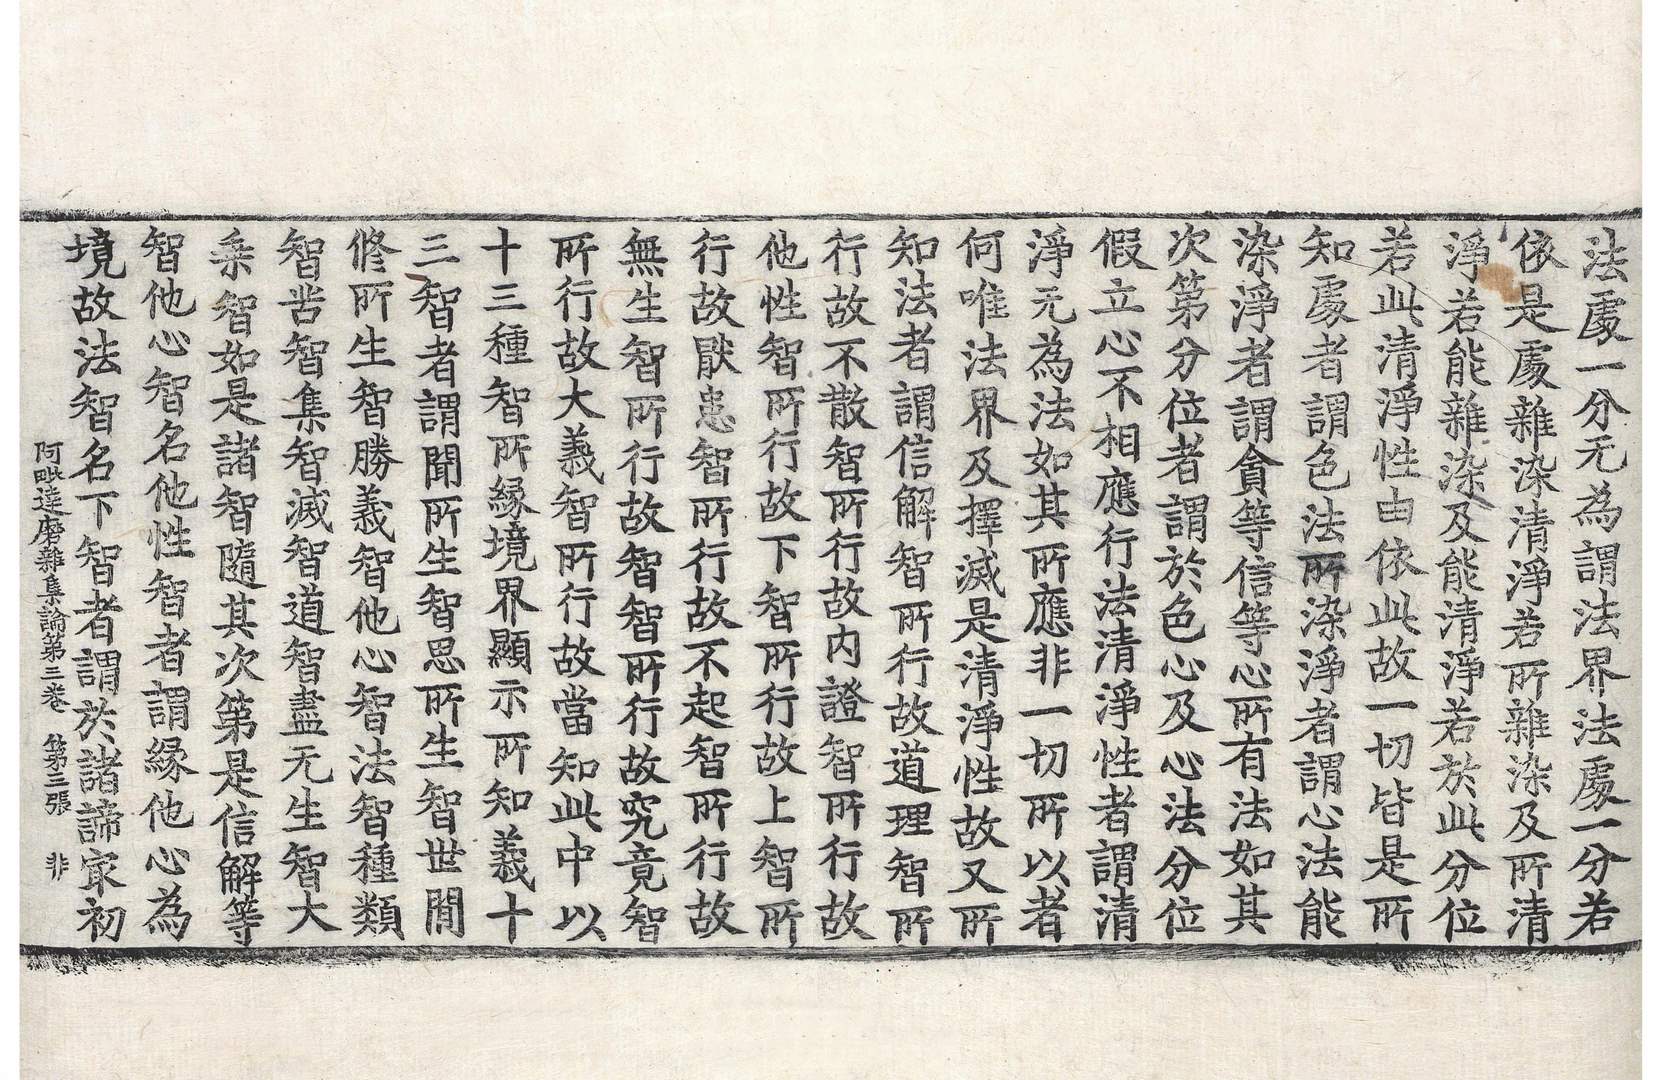 法處一分无為謂法界法處一分若
依是處雜染清淨若所雜染及所清
淨若能雜染及能清淨若於此分位
若此清淨性由依此故一切皆是所
知處者謂色法所染淨者謂心法能
染淨者謂貪等信等心所有法如其
次第分位者謂於色心及心法分位
假立心不相應行法清淨性者謂清
淨无為法如其所應非一切所以者
何唯法界及擇滅是清淨性故又所
知法者謂信解智所行故道理智所
行故不散智所行故内證智所行故
他性智所行故下智所行故上智所
行故猒患智所行故不起智所行故
無生智所行故智智所行故究竟智
所行故大義智所行故當知此中以
十三種智所緣境界顯示所知義十
三智者謂聞所生智思所生智世閒
修所生智勝義智他心智法智種類
智苦智集智滅智道智盡无生智大
乘智如是諸智隨其次第是信解等
智他心智名他性智者謂緣他心為
境故法智名下智者謂於諸諦㝡初
阿毗達磨雜集論第三卷 第三張 非